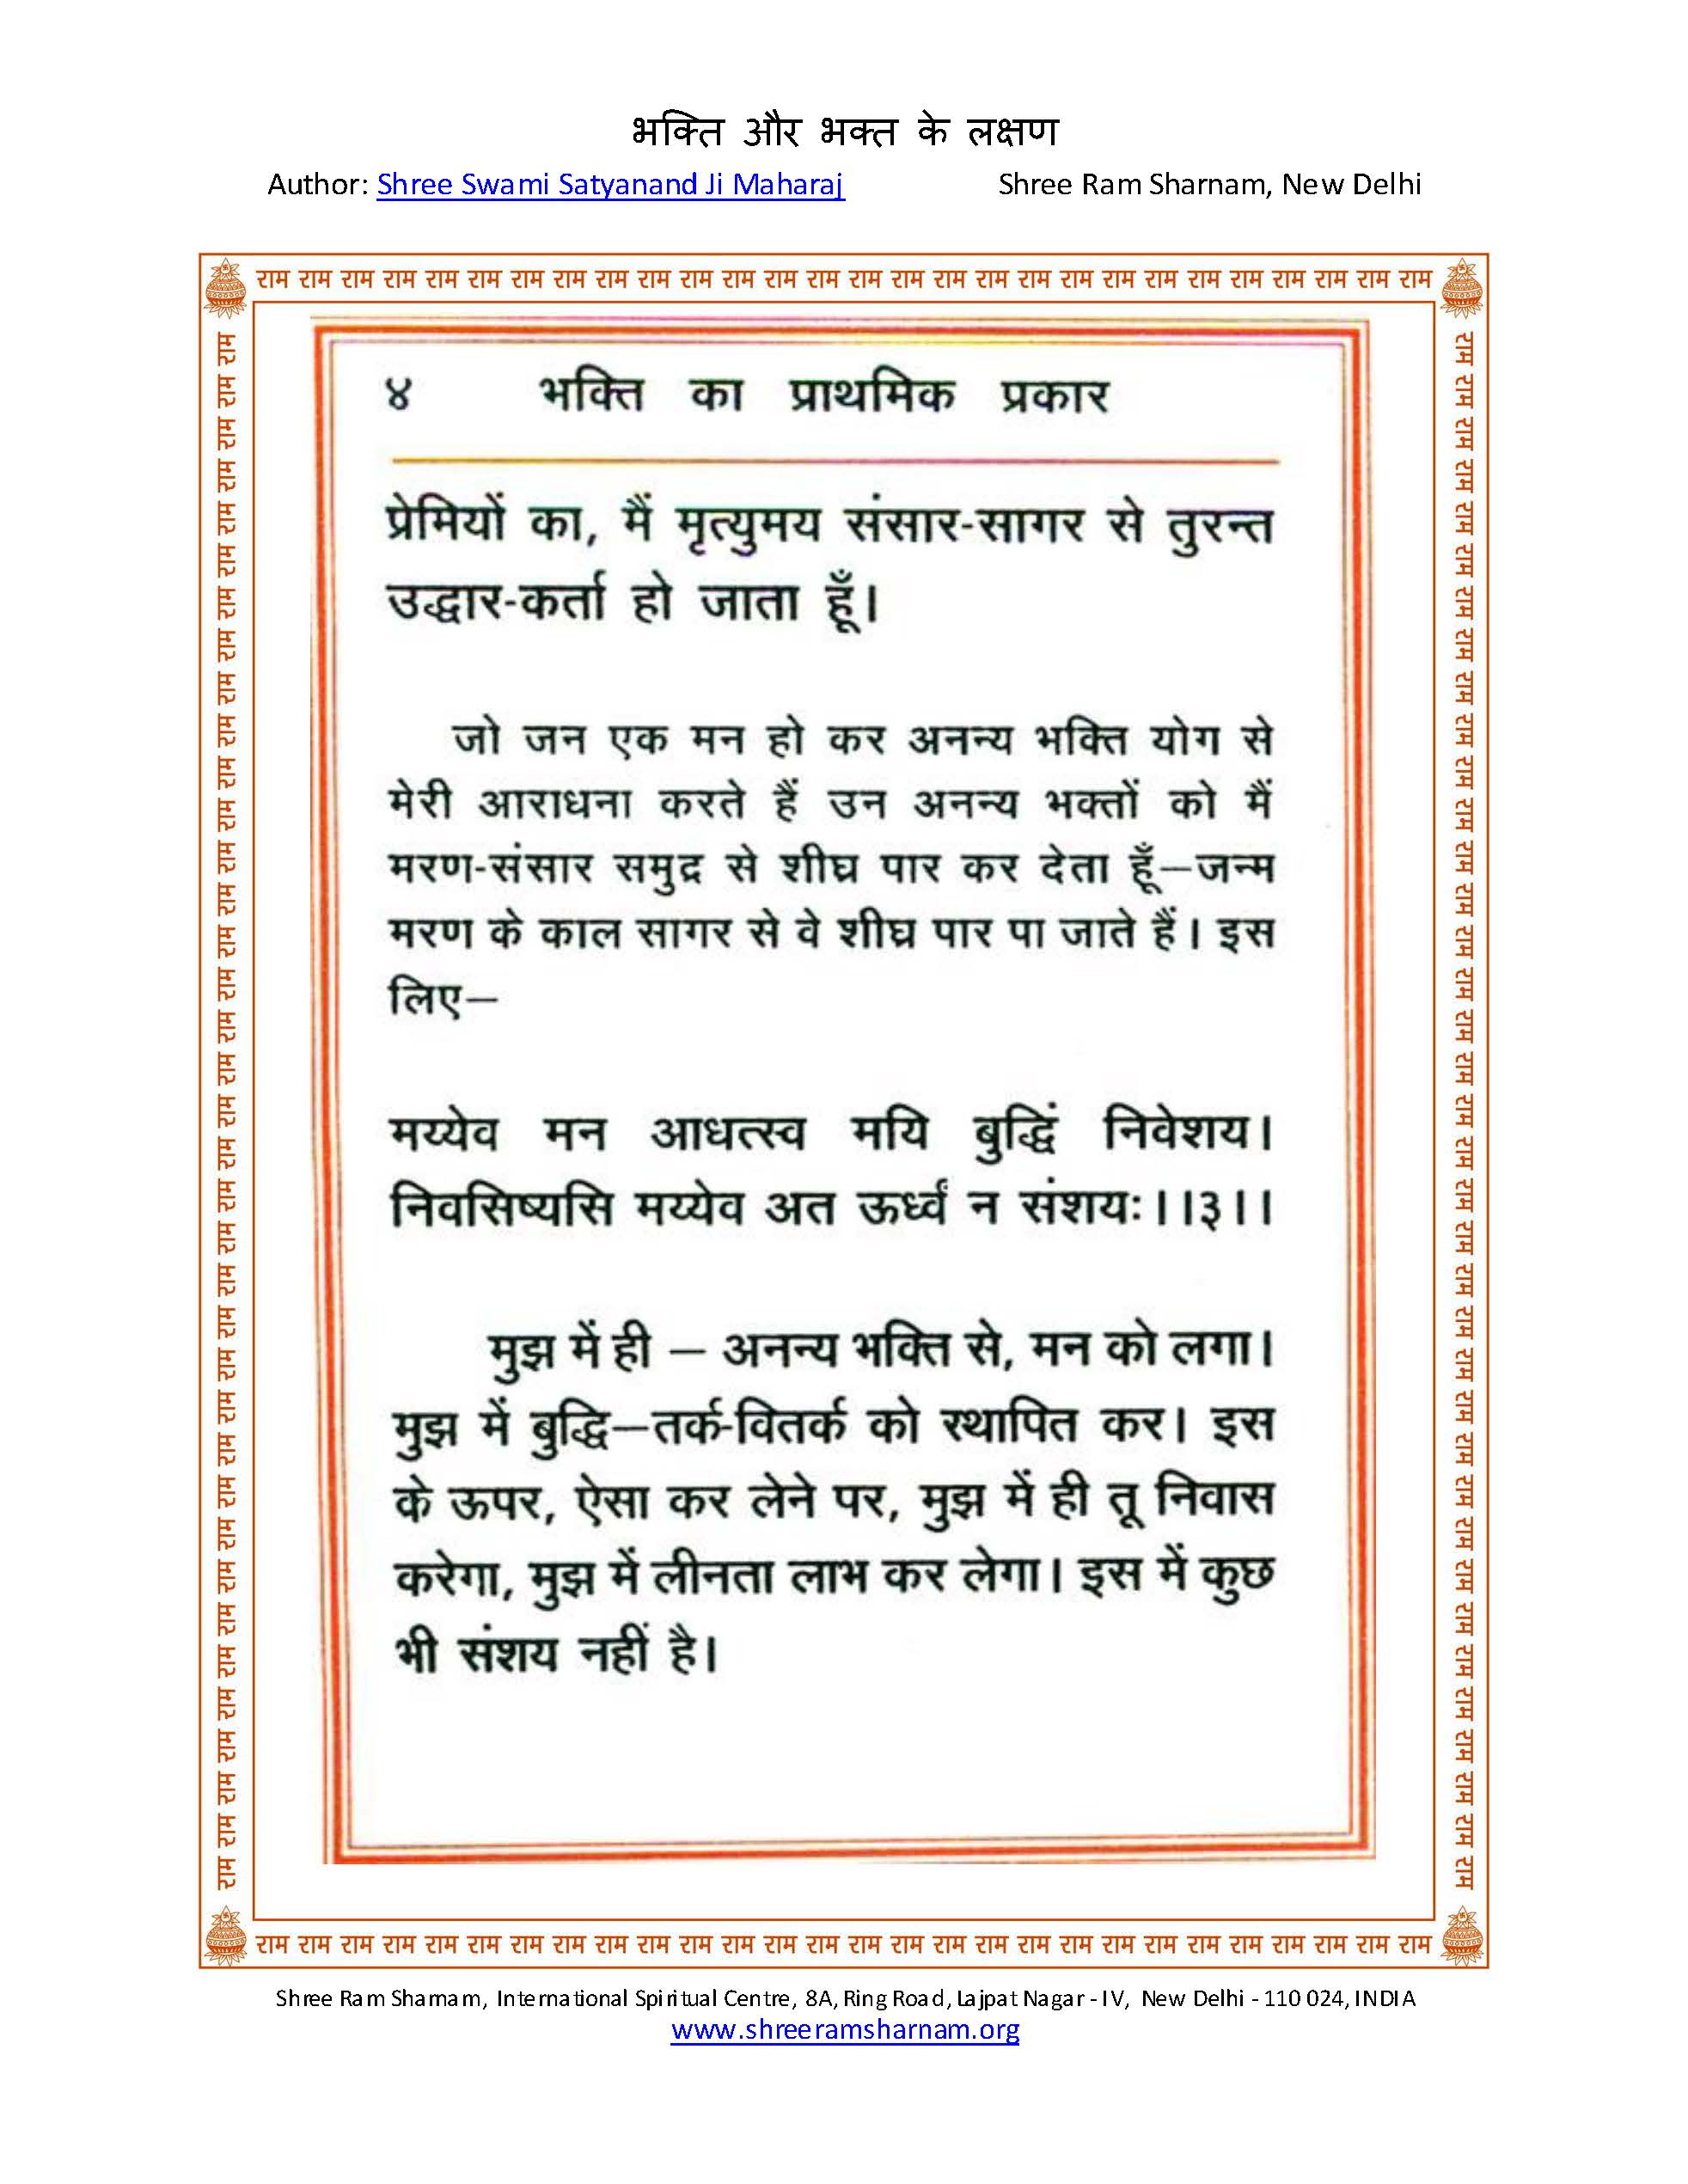 भक्ति और भक्त के लक्षण
Author: Shree Swami Satyanand Ji Maharaj Shree Ram Sharnam, New Delhi
राम राम राम राम राम राम राम राम राम राम राम राम राम राम राम राम राम राम राम राम राम राम राम राम राम राम राम राम
४ भक्ति का प्राथमिक प्रकार
प्रेमियों का, मैं मृत्युमय संसार-सागर से तुरन्त
उद्धार-कर्ता हो जाता हूँ।
जो जन एक मन हो कर अनन्य भक्ति योग से
मेरी आराधना करते हैं उन अनन्य भक्तों को मैं
मरण-संसार समुद्र से शीघ्र पार कर देता हूँ—जन्म
मरण के काल सागर से वे शीघ्र पार पा जाते हैं। इस
लिए—
मय्येव मन आधत्स्व मयि बुद्धिं निवेशय।
निवसिष्यसि मय्येव अत ऊर्ध्वं न संशयः।।३।।
मुझ में ही — अनन्य भक्ति से, मन को लगा।
मुझ में बुद्धि—तर्क-वितर्क को स्थापित कर। इस
के ऊपर, ऐसा कर लेने पर, मुझ में ही तू निवास
करेगा, मुझ में लीनता लाभ कर लेगा। इस में कुछ
भी संशय नहीं है।
राम राम राम राम राम राम राम राम राम राम राम राम राम राम राम राम राम राम राम राम राम राम राम राम राम राम राम राम राम राम राम राम राम राम राम राम राम
राम राम राम राम राम राम राम राम राम राम राम राम राम राम राम राम राम राम राम राम राम राम राम राम राम राम राम राम राम राम राम राम राम राम राम राम राम
राम राम राम राम राम राम राम राम राम राम राम राम राम राम राम राम राम राम राम राम राम राम राम राम राम राम राम राम
Shree Ram Sharnam, International Spiritual Centre, 8A, Ring Road, Lajpat Nagar - IV, New Delhi - 110 024, INDIA
www.shreeramsharnam.org